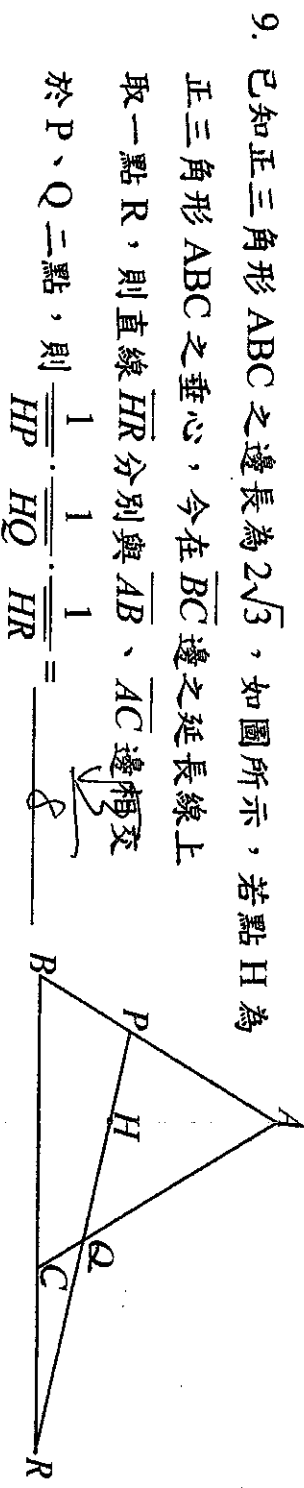 9. 已知正三角形 ABC 之邊長為 $2\sqrt{3}$，如圖所示，若點 H 為
正三角形 ABC 之垂心，今在 $\overline{BC}$ 邊之延長線上
取一點 R，則直線 $\overleftrightarrow{HR}$ 分別與 $\overline{AB}$、$\overline{AC}$ 邊相交
於 P、Q 二點，則 $\frac{1}{\overline{HP}} \cdot \frac{1}{\overline{HQ}} \cdot \frac{1}{\overline{HR}} =$
8
A
P
H
Q
B
C
R